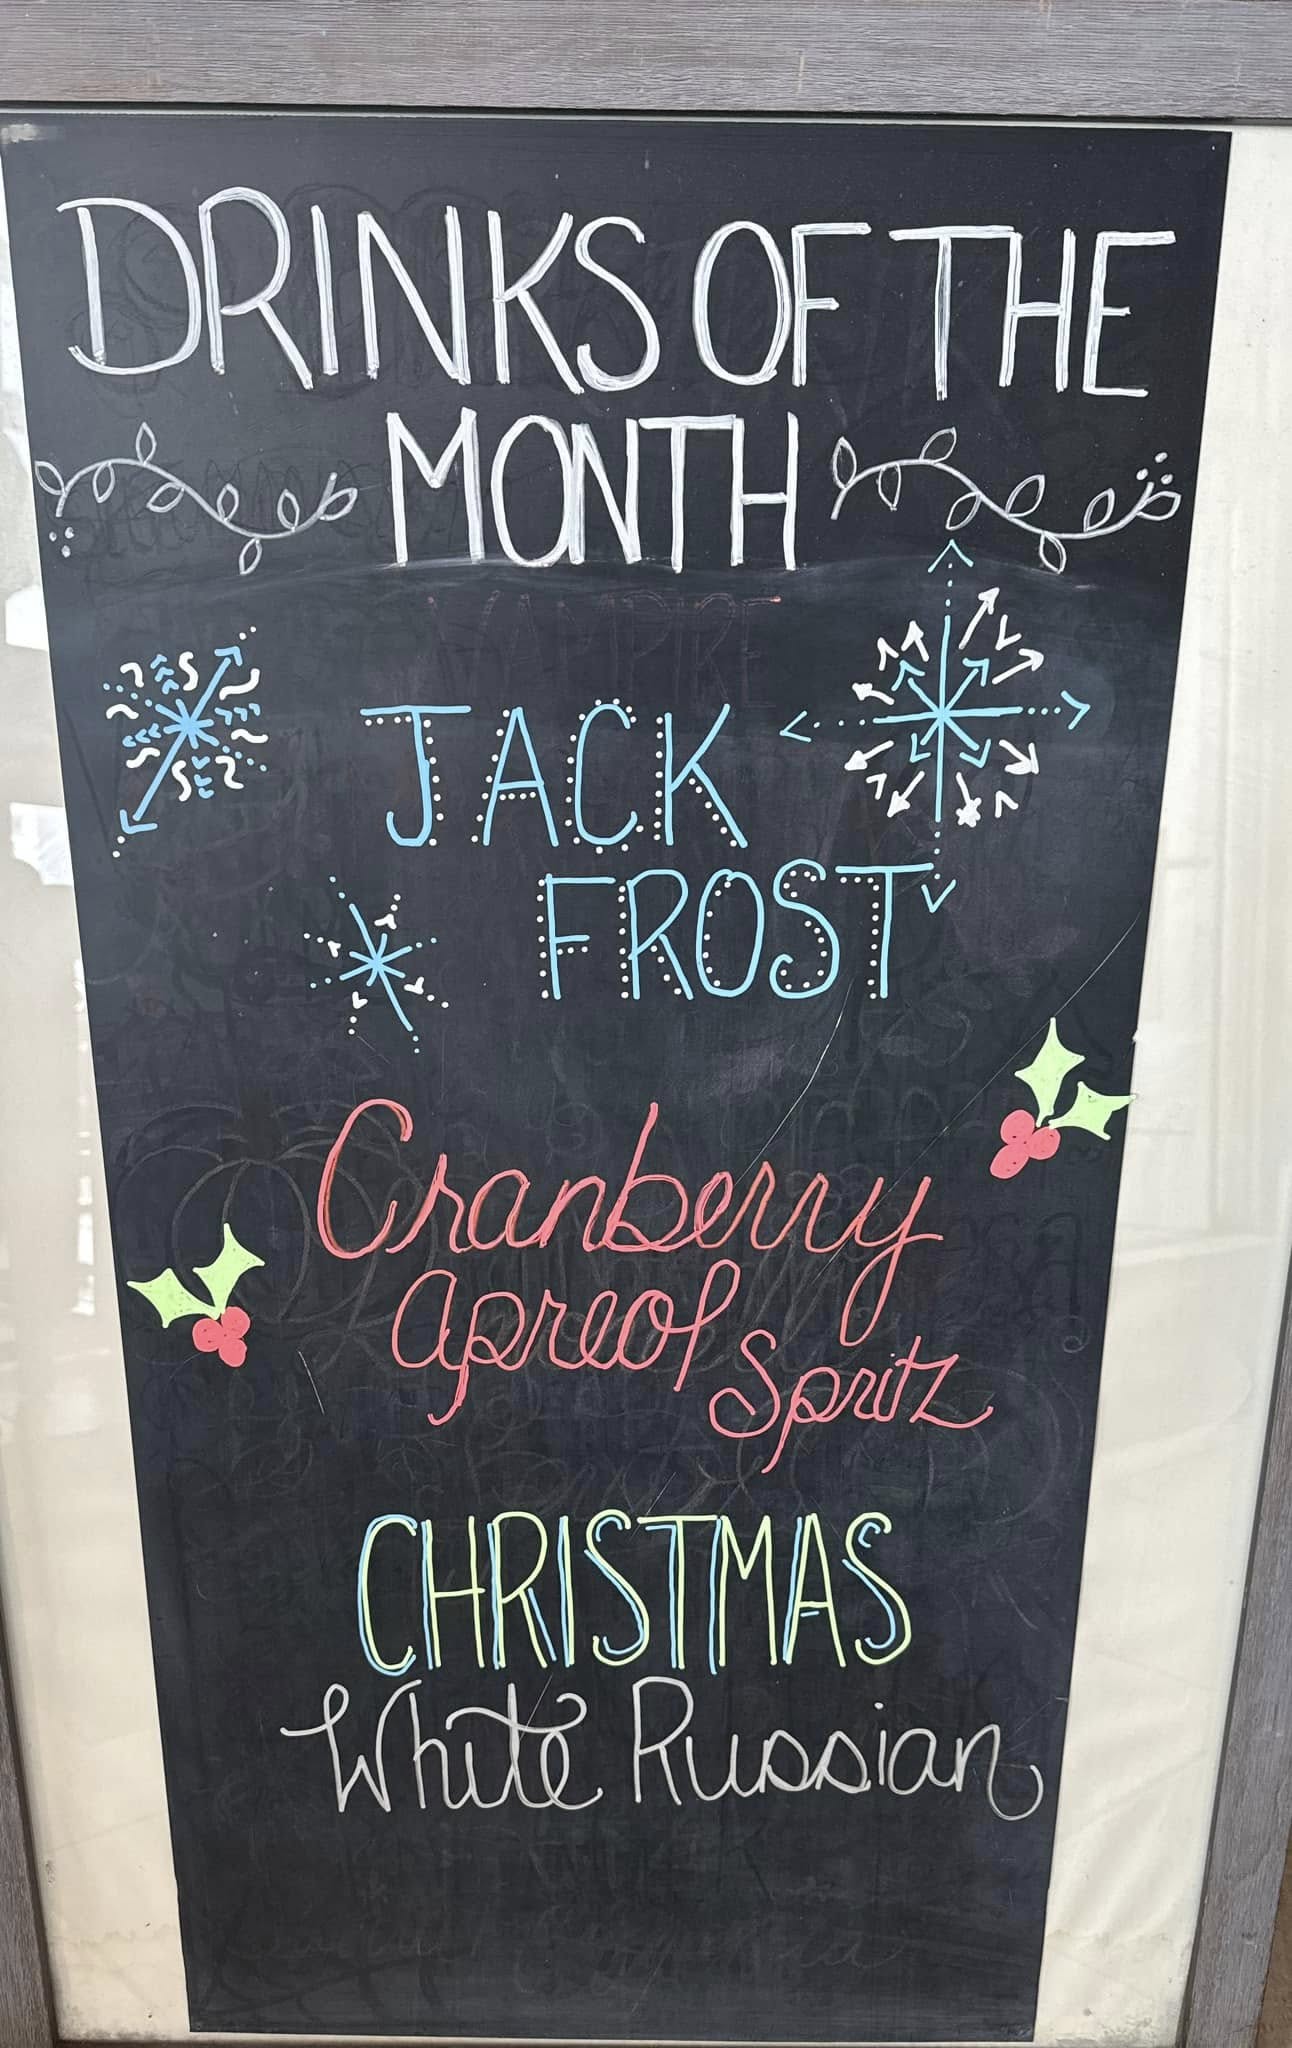 DRINKS OF THE
MONTH
VAMPIRE
JACK
FROST
Cranberry
Apreol
Spritz
CHRISTMAS
White Russian